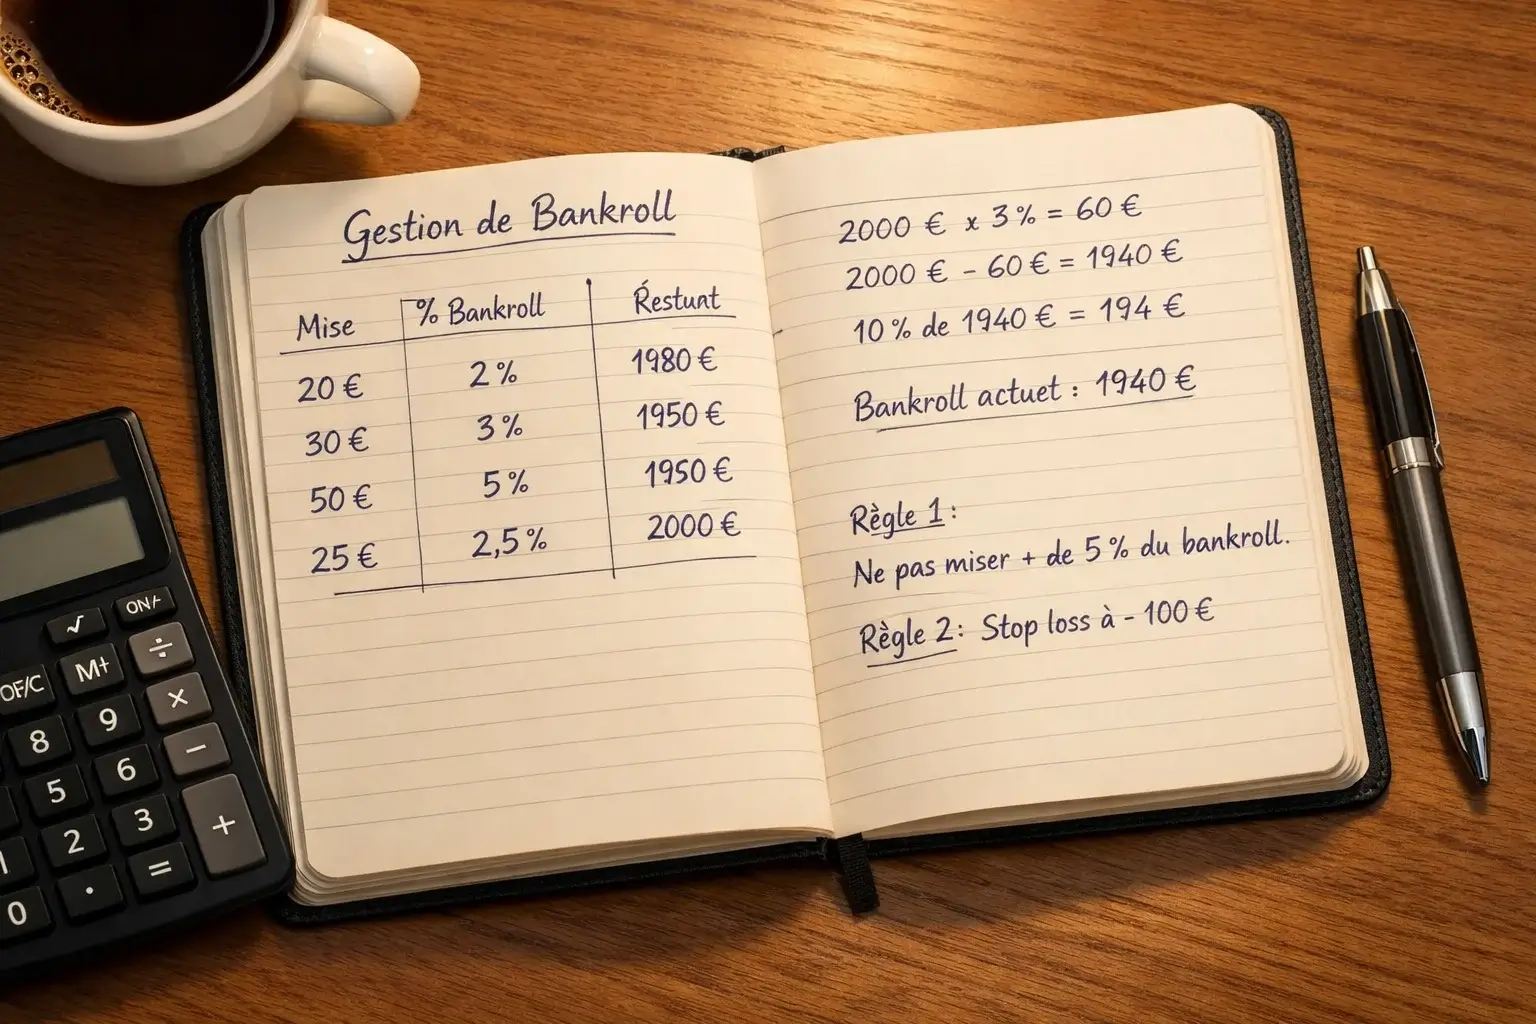 Gestion de Bankroll
Mise % Bankroll Réstunt
20 € 2 % 1980 €
30 € 3 % 1950 €
50 € 5 % 1950 €
25 € 2,5 % 2000 €
2000 € x 3 % = 60 €
2000 € - 60 € = 1940 €
10 % de 1940 € = 194 €
Bankroll actuet : 1940 €
Règle 1 :
Ne pas miser + de 5 % du bankroll.
Règle 2 : Stop loss à - 100 €
√ ON/-
OF/C M+ ÷
8 9 ×
5 6 -
1 2 3 +
0 . =